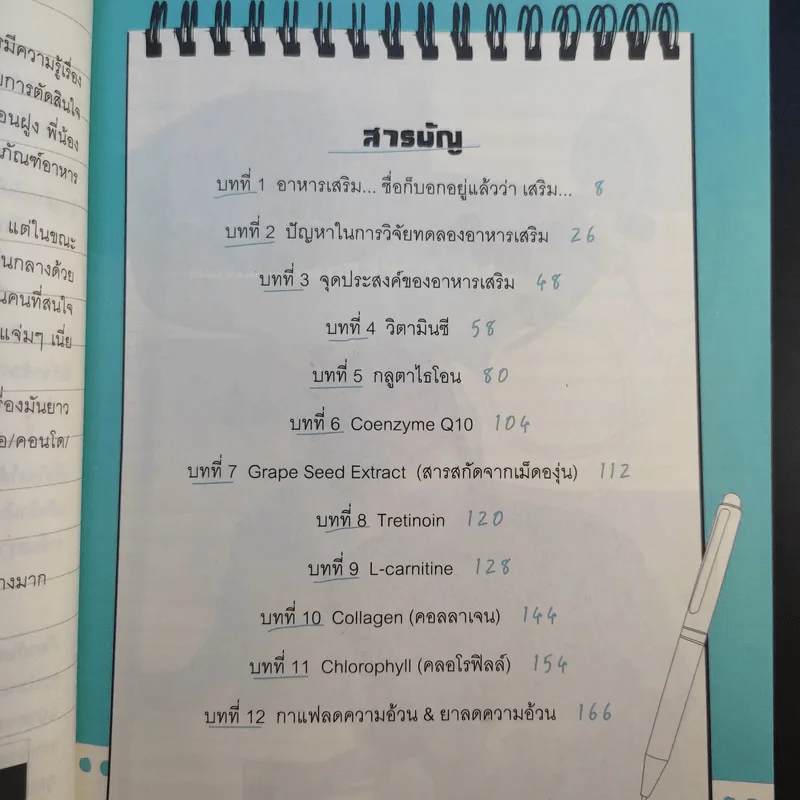 รมีความรู้เรื่อง
การตัดสินใจ
อนฝูง พี่น้อง
ภัณฑ์อาหาร
แต่ในขณะ
นกลางด้วย
นคนที่สนใจ
แจ่มๆ เนี่ย
รื่องมันยาว
อ/คอนโด/
างมาก
สารบัญ
บทที่ 1 อาหารเสริม... ชื่อก็บอกอยู่แล้วว่า เสริม... 8
บทที่ 2 ปัญหาในการวิจัยทดลองอาหารเสริม 26
บทที่ 3 จุดประสงค์ของอาหารเสริม 48
บทที่ 4 วิตามินซี 58
บทที่ 5 กลูตาไธโอน 80
บทที่ 6 Coenzyme Q10 104
บทที่ 7 Grape Seed Extract (สารสกัดจากเม็ดองุ่น) 112
บทที่ 8 Tretinoin 120
บทที่ 9 L-carnitine 128
บทที่ 10 Collagen (คอลลาเจน) 144
บทที่ 11 Chlorophyll (คลอโรฟิลล์) 154
บทที่ 12 กาแฟลดความอ้วน & ยาลดความอ้วน 166